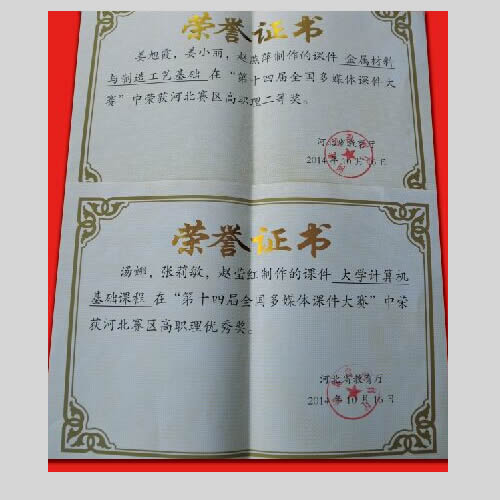 荣誉证书
姜旭霞，姜小丽，赵燕萍制作的课件 金属材料
与制造工艺基础 在“第十四届全国多媒体课件大
赛”中荣获河北赛区高职理二等奖。
河北省教育厅
2014年10月16日
荣誉证书
汤娜，张莉敏，赵莹红制作的课件 大学计算机
基础课程 在“第十四届全国多媒体课件大赛”中荣
获河北赛区高职理优秀奖。
河北省教育厅
2014年10月16日